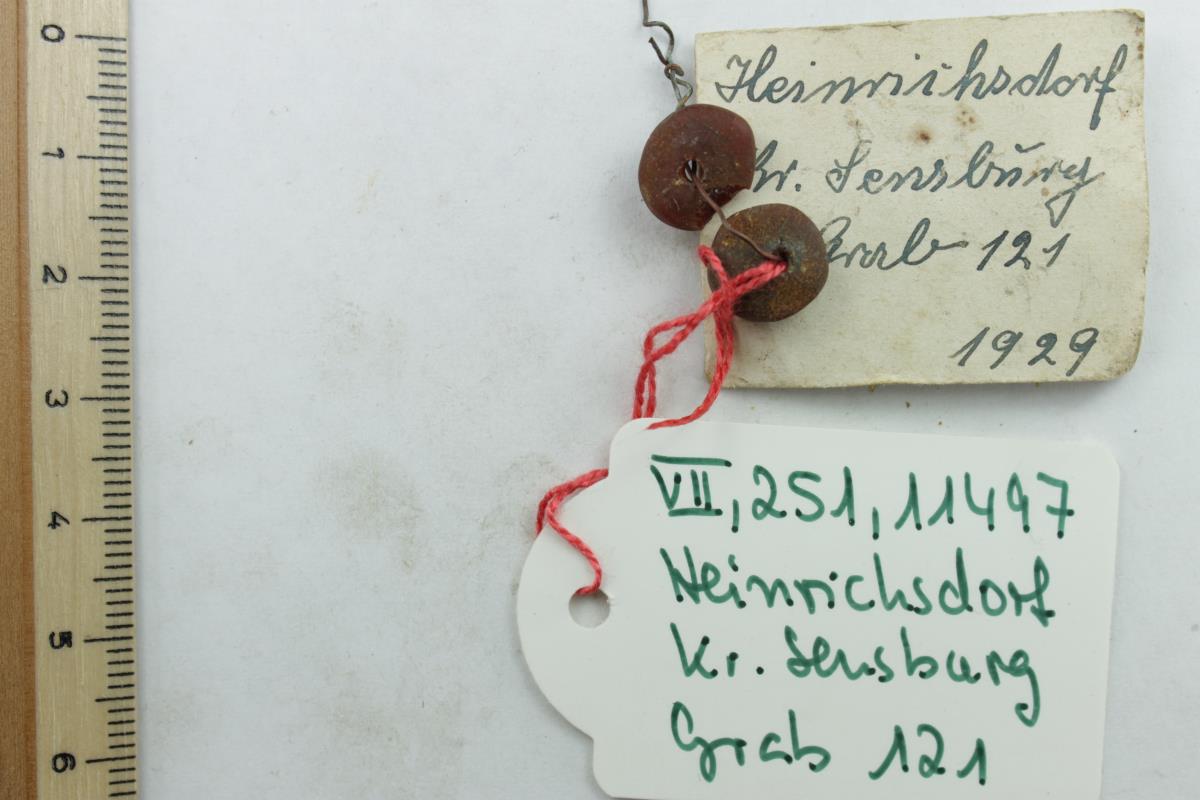 Heinrichsdorf
Kr. Sensburg
Grab 121
1929
VII, 251, 11497
Heinrichsdorf
Kr. Sensburg
Grab 121
0
1
2
3
4
5
6